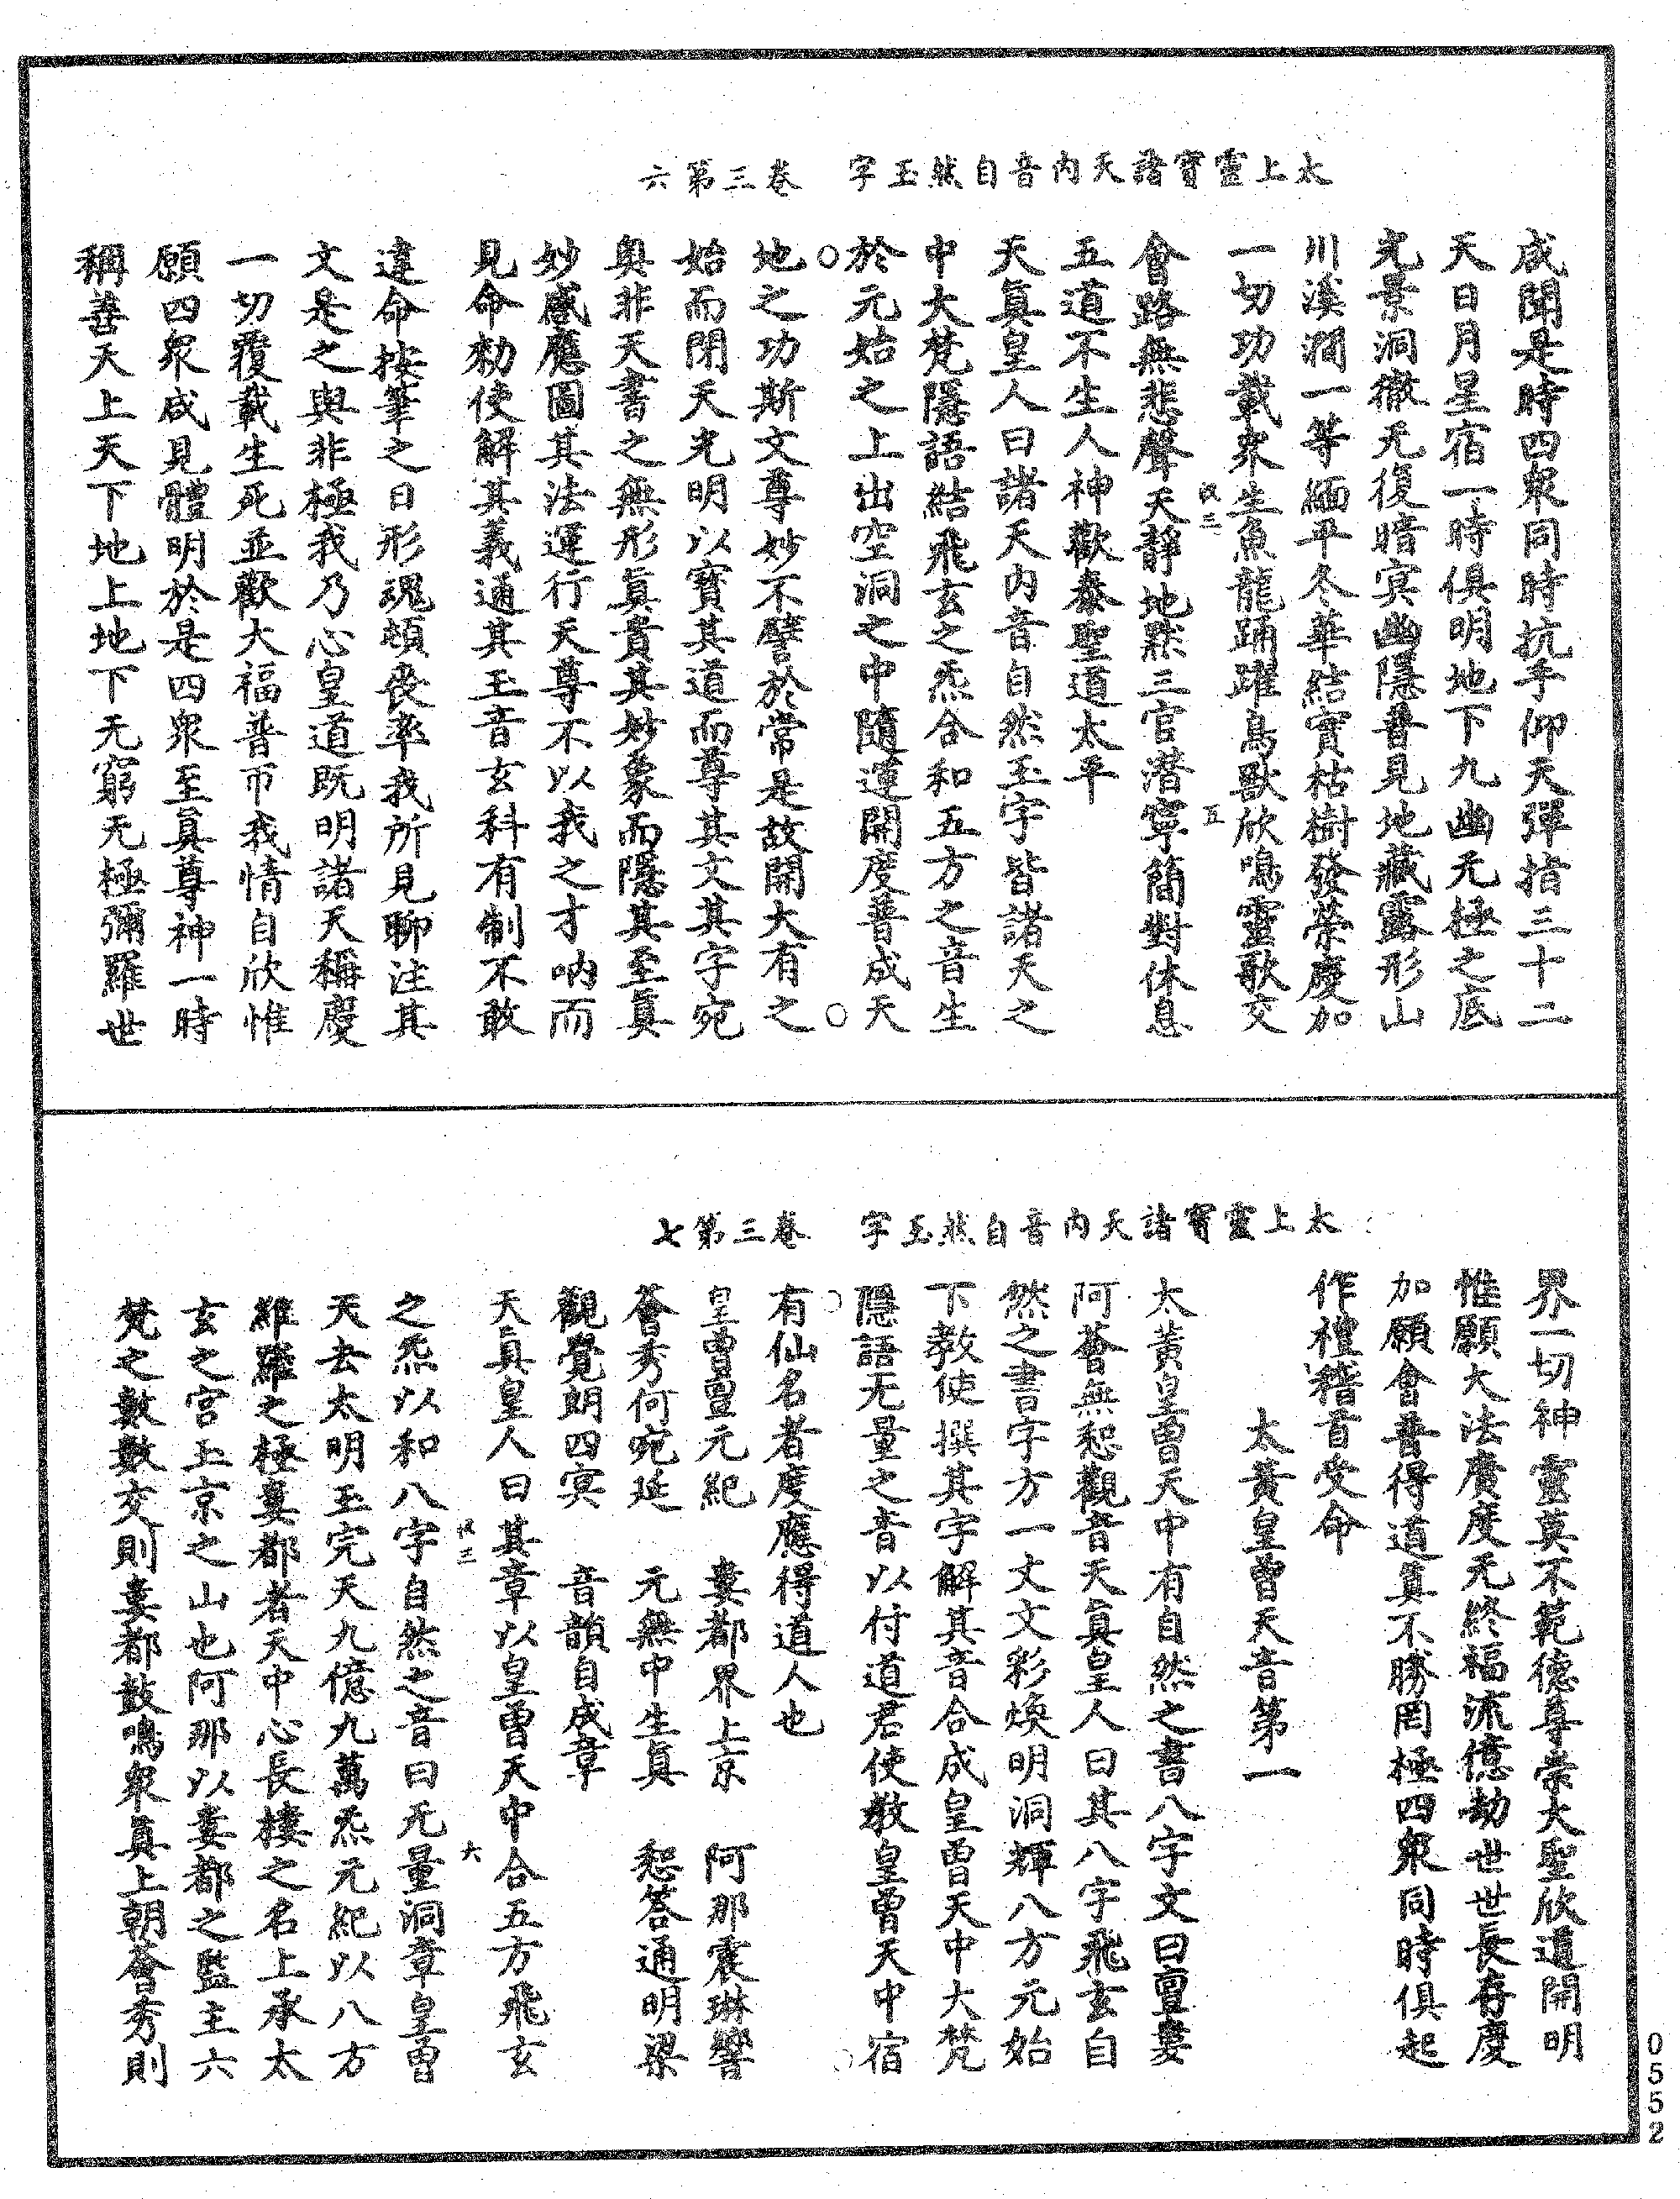 太上靈寶諸天內音自然玉字　卷三第六
成聞是時四衆同時抗手仰天彈指三十二
天日月星宿一時俱明地下九幽无極之底
光景洞徹无復暗冥幽隱普見地藏露形山
川溪澗一等緬平冬華結實枯樹發榮慶加
一切功載衆生魚龍踊躍鳥獸欣鳴靈歌交
會路無悲聲天靜地默三官潛寧簡對休息
五道不生人神歡泰聖道太平
天眞皇人曰諸天內音自然玉字皆諸天之
中大梵隱語結飛玄之炁合和五方之音生
於元始之上出空洞之中隨運開度普成天
地之功斯文尊妙不譬於常是故開大有之
始而閉天光明以寶其道而尊其文其字宛
奥非天書之無形眞貴其妙象而隱其至眞
妙感應圖其法運行天尊不以我之才吶而
見命勑使解其義通其玉音玄科有制不敢
違命按筆之日形魂頓喪率我所見聊注其
文是之與非極我乃心皇道旣明諸天稱慶
一切覆載生死並歡大福普帀我情自欣惟
願四衆咸見體明於是四衆至眞尊神一時
稱善天上天下地上地下无窮无極彌羅世
太上靈寶諸天內音自然玉字　卷三第七
界一切神靈莫不範德尊崇大聖欣道開明
惟願大法廣度无終福流億劫世世長存慶
加願會普得道眞不勝罔極四衆同時俱起
作禮稽首受命
太黃皇曾天音第一
太黃皇曾天中有自然之書八字文曰亶婁
阿薈無惒觀音天眞皇人曰其八字飛玄自
然之書字方一丈文彩煥明洞輝八方元始
下教使撰其字解其音合成皇曾天中大梵
隱語无量之音以付道君使教皇曾天中宿
有仙名者度應得道人也
皇曾亶元紀　婁都界上京　阿那震琳響
薈秀何宛延　元無中生眞　惒答通明梁
觀覺朗四冥　音韻自成章
天眞皇人曰其章以皇曾天中合五方飛玄
之炁以和八字自然之音曰无量洞章皇曾
天去太明玉完天九億九萬炁元紀以八方
維羅之極婁都者天中心長樓之名上承太
玄之宮玉京之山也阿那以婁都之監主六
梵之數數交則婁都鼓鳴衆眞上朝薈秀則
0552